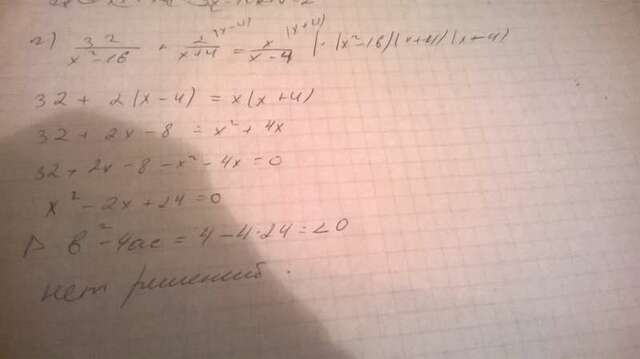 2) 32/(x²-16) + 2/(x+4) (x-4) = x/(x-4) (x+4) | · (x²-16)(x+4)(x-4)
32 + 2(x-4) = x(x+4)
32 + 2x - 8 = x² + 4x
32 + 2x - 8 - x² - 4x = 0
x² - 2x + 24 = 0
D b² - 4ac = 4 - 4·24 = < 0
нет решений.